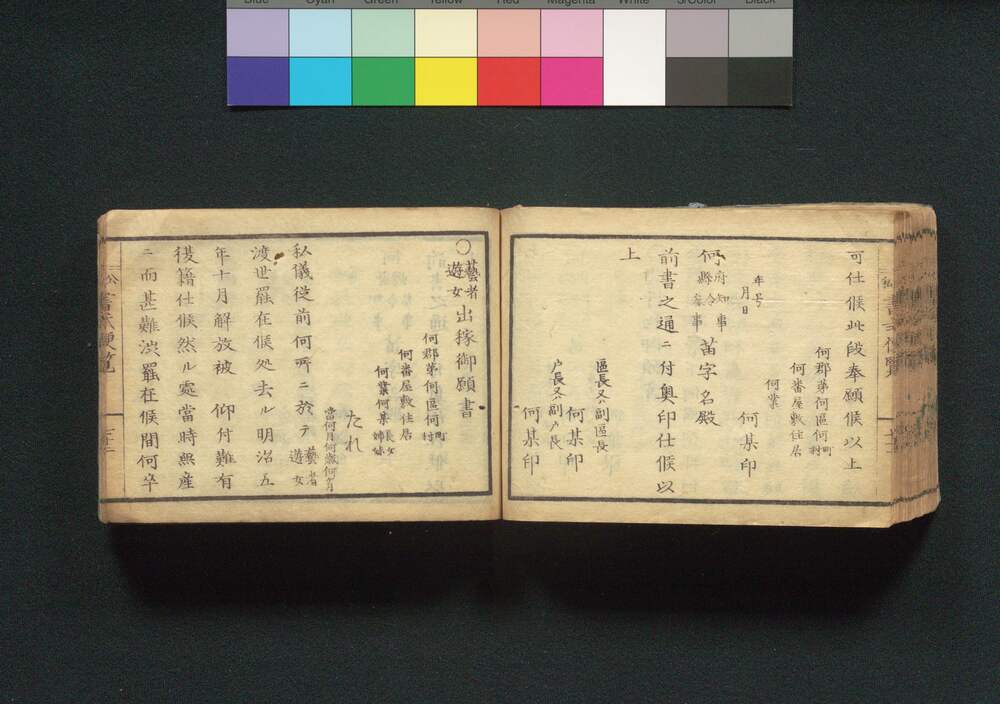 Blue Cyan Green Yellow Red Magenta White 3/Color Black
可仕候此段奉願候以上
何郡第何區何町村
何番屋敷住居
何業
年号月日
何某印
何府知事縣令参事苗字名殿
前書之通ニ付奥印仕候以
上
區長又ハ副區長
何某印
戸長又ハ副戸長
何某印
○藝者遊女出稼御願書
何郡第何區何町村
何番屋敷住居
何業何某長女姉妹
たれ
當何月何歳何ヶ月
私儀従前何所ニ於テ藝者遊女
渡世罷在候処去ル明治五
年十月解放被 仰付難有
復籍仕候然ル處當時無産
ニ而甚難渋罷在候間何卒